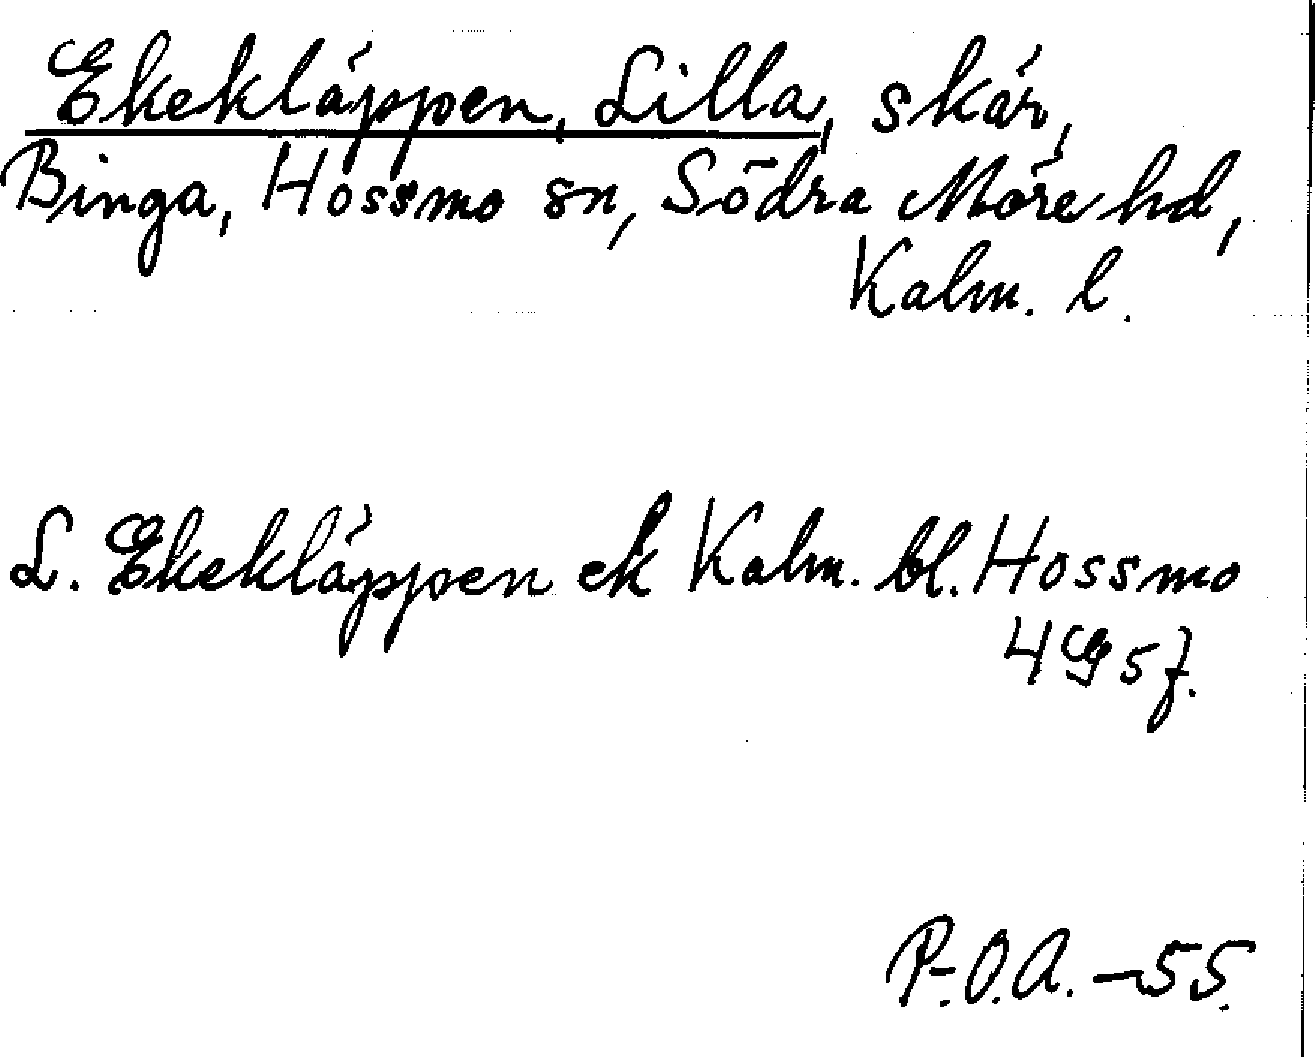 Ekekläppen, Lilla, skär,
Binga, Hossmo sn, Södra Möre hd,
Kalm. l.
L. Ekekläppen ek Kalm. bl. Hossmo
4G5f.
P.-O.A. -55.